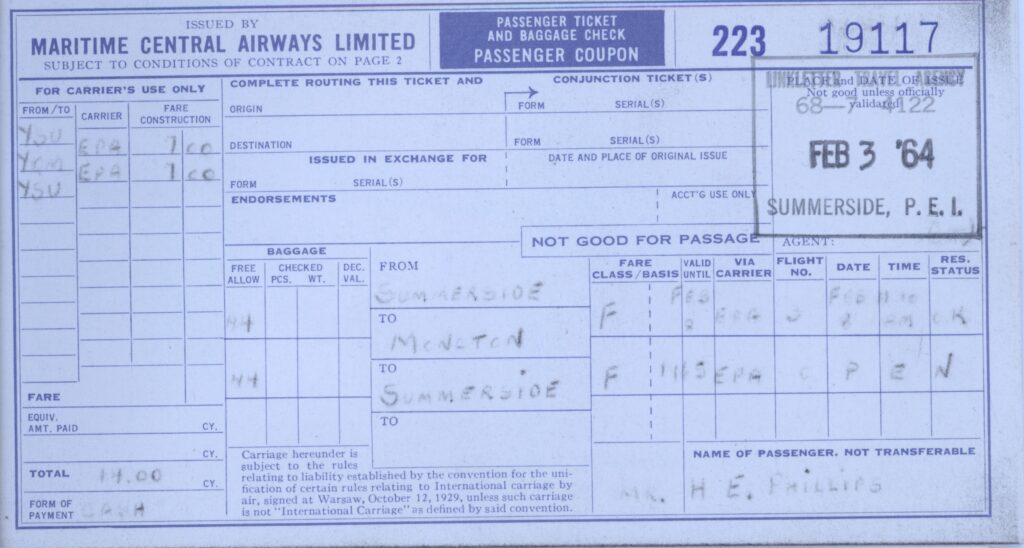 ISSUED BY
MARITIME CENTRAL AIRWAYS LIMITED
SUBJECT TO CONDITIONS OF CONTRACT ON PAGE 2
PASSENGER TICKET
AND BAGGAGE CHECK
PASSENGER COUPON
223 19117
FOR CARRIER'S USE ONLY
FROM/TO CARRIER FARE CONSTRUCTION
YSU EPA 7 00
YQM EPA 7 00
YSU
FARE
EQUIV. AMT. PAID CY.
CY.
TOTAL 14.00 CY.
FORM OF PAYMENT CASH
COMPLETE ROUTING THIS TICKET AND CONJUNCTION TICKET(S)
ORIGIN FORM SERIAL(S)
DESTINATION FORM SERIAL(S)
ISSUED IN EXCHANGE FOR DATE AND PLACE OF ORIGINAL ISSUE
FORM SERIAL(S)
ENDORSEMENTS ACCT'G USE ONLY
LINKLETTER TRAVEL AGENCY
PLACE and DATE OF ISSUE
Not good unless officially
validated
68—7 4122
FEB 3 '64
SUMMERSIDE, P. E. I.
NOT GOOD FOR PASSAGE AGENT:
BAGGAGE
FREE ALLOW CHECKED PCS. WT. DEC. VAL.
FROM FARE CLASS/BASIS VALID UNTIL VIA CARRIER FLIGHT NO. DATE TIME RES. STATUS
44 SUMMERSIDE F FEB 8 EPA FEB 8 AM OK
TO
MONCTON
44 F EPA O P E N
TO
SUMMERSIDE
TO
Carriage hereunder is
subject to the rules
relating to liability established by the convention for the uni-
fication of certain rules relating to International carriage by
air, signed at Warsaw, October 12, 1929, unless such carriage
is not "International Carriage" as defined by said convention.
NAME OF PASSENGER. NOT TRANSFERABLE
MR. H E. PHILLIPS